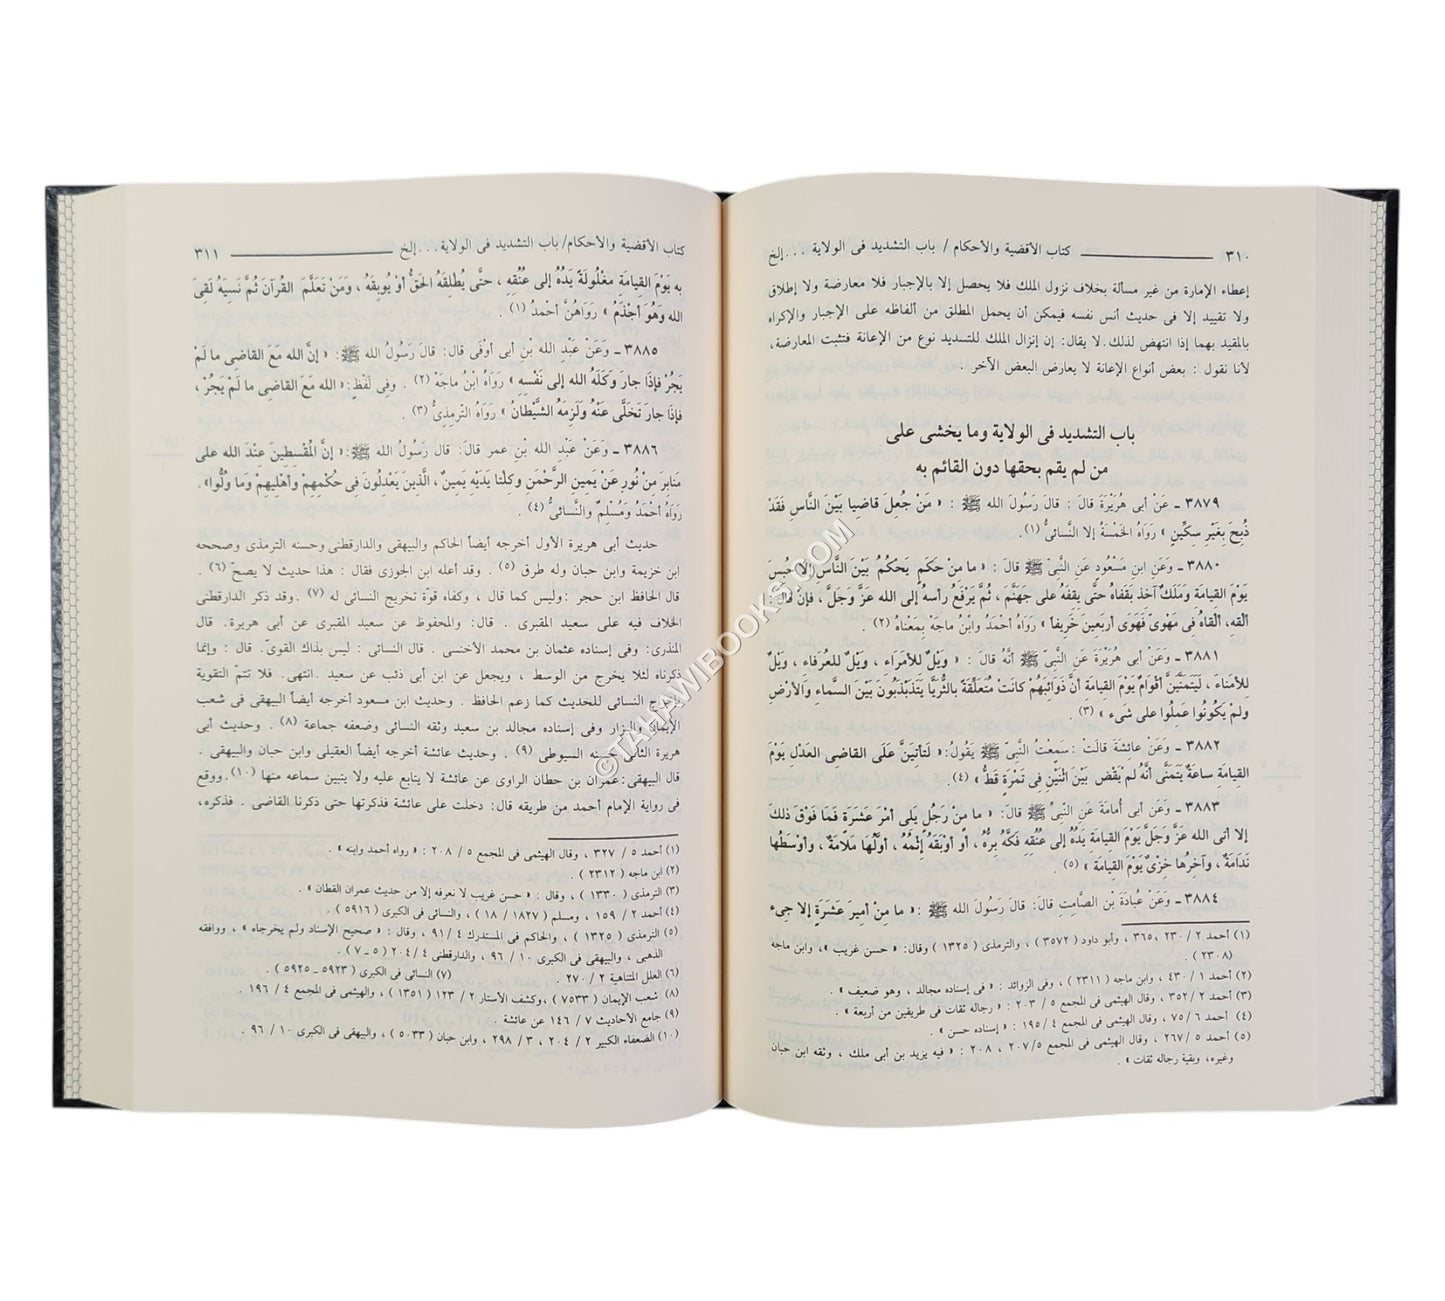 ٣١٠ كتاب الأقضية والأحكام / باب التشديد فى الولاية . . . إلخ
إعطاء الإمارة من غير مسألة بخلاف نزول الملك فلا يحصل إلا بالإجبار فلا معارضة ولا إطلاق
ولا تقييد إلا فى حديث أنس نفسه فيمكن أن يحمل المطلق من ألفاظه على الإجبار والإكراه
بالمقيد بهما إذا انتهض لذلك.لا يقال: إن إنزال الملك للتسديد نوع من الإعانة فتثبت المعارضة،
لأنا نقول : بعض أنواع الإعانة لا يعارض البعض الآخر .
باب التشديد فى الولاية وما يخشى على
من لم يقم بحقها دون القائم به
٣٨٧٩ ـ عَنْ أبى هُرَيْرَةَ قالَ : قالَ رَسُولُ الله ﷺ : « مَنْ جُعِلَ قاضِيا بَيْنَ النَّاسِ فَقَدْ
ذُبِحَ بِغَيْرِ سِكِّينٍ » رَوَاهُ الخَمْسَةُ إلا النَّسائىُّ (١).
٣٨٨٠ ـ وَعَنِ ابنِ مَسْعُود عَنِ النَّبِىِّ ﷺ قالَ : « ما مِنْ حَكَمٍ يَحْكُمُ بَيْنَ النَّاسِ إلا حُبِسَ
يَوْمَ القِيامَة وَمَلَكٌ آخذ بَقَفاهُ حتَّى يقِفَهُ على جَهَنَّمَ ، ثُمَّ يَرْفَعُ رأسهُ إلى الله عَزَّ وَجَلَّ ، فإنْ قالَ:
ألْقِه، ألْقاهُ فِى مَهْوًى فَهَوَى أربعينَ خَرِيفاً » رَوَاهُ أحْمَدُ وابْنُ ماجَهْ بِمَعْناهُ (٢) .
٣٨٨١ ـ وَعَنْ أبى هُرَيْرَةَ عَنِ النَّبىِّ ﷺ أنَّهُ قالَ : « وَيْلٌ للأمَراء ، وَيْلٌ للعُرفاء ، وَيْلٌ
للأمناء ، لَيَتَمَنَّيَنَّ أقْوامٌ يَوْمَ القيامَة أنَّ ذَوائِبَهُمْ كانَتْ مُتَعلِّقَةً بالثُّريَّا يَتَذَبْذَبُونَ بَيْنَ السَّماءِ والأرْضِ
ولمْ يَكُونُوا عَمِلُوا على شَىء » (٣) .
٣٨٨٢ ـ وَعَنْ عائِشَةَ قالَتْ :سَمِعْتُ النَّبىَّ ﷺ يَقُولُ:« لَتأتِيَنَّ عَلَى القاضِى العَدْلِ يَوْمَ
القِيامَةِ ساعَةٌ يَتَمَنَّى أنَّهُ لَمْ يَقْضِ بَيْنَ اثْنَيْنِ فِى تَمْرَةٍ قَطُّ » (٤) .
٣٨٨٣ ـ وَعَن أبى أُمَامَةَ عَنِ النَّبِىِّ ﷺ قالَ: « ما مِنْ رَجُلٍ يَلِى أمْرَ عَشَرَةٍ فَمَا فَوْقَ ذلكَ
إلا أتى الله عَزَّ وَجَلَّ يَوْمَ القِيامَةِ يَدُهُ إلى عُنُقِهِ فَكَّهُ بِرُّهُ ، أو أوْبَقَهُ إثْمُهُ ، أوَّلُهَا مَلامَةٌ ، وَأوْسَطُها
نَدَامَةٌ ، وَآخِرُها خِزْىٌ يَوْمَ القِيامَةِ » (٥) .
٣٨٨٤ ـ وَعَنْ عُبادَةَ بْنِ الصَّامِتِ قالَ: قالَ رَسُولُ الله ﷺ :« ما مِنْ أمِيرِ عَشَرَةٍ إلا جِىء
(١) أحمد ٢ / ٢٣٠ ،٣٦٥ ، وأبو داود ( ٣٥٧٢ ) ، والترمذى ( ١٣٢٥ ) وقال: « حسن غريب »، وابن ماجه
( ٢٣٠٨ ) .
(٢) أحمد ١ / ٤٣٠ ، وابن ماجه ( ٢٣١١ ) ، وفى الزوائد : « فى إسناده مجالد ، وهو ضعيف » .
(٣) أحمد ٢ / ٣٥٢ ، وقال الهيثمى فى المجمع ٥ / ٢٠٣ : « رجاله ثقات فى طريقين من أربعة » .
(٤) أحمد ٦ / ٧٥ ، وقال الهيثمى فى المجمع ٤ /١٩٥ : « إسناده حسن » .
(٥) أحمد ٥ / ٢٦٧ ، وقال الهيثمى فى المجمع ٥ /٢٠٧ ، ٢٠٨ : « فيه يزيد بن أبى ملك ، وثقه ابن حبان
وغيره، وبقية رجاله ثقات » .
كتاب الأقضية والأحكام/ باب التشديد فى الولاية . . . إلخ ٣١١
به يَوْمَ القِيامَةِ مَغْلُولَةً يَدُهُ إلى عُنُقِهِ ، حتَّى يُطلِقَهُ الحَقُّ أوْ يُوبِقَهُ ، وَمَنْ تَعَلَّمَ القُرآنَ ثُمَّ نَسِيَهُ لَقىَ
الله وَهُوَ أجْذَمُ » رَوَاهُنَّ أحْمَدُ (١) .
٣٨٨٥ ـ وَعَنْ عَبْدِ الله بْنِ أبى أوْفَى قالَ: قالَ رَسُولُ الله ﷺ: « إنَّ الله مَعَ القاضِى ما لَمْ
يَجُرْ فإذَا جارَ وَكَلَهُ الله إلى نَفْسِهِ » رَوَاهُ ابْنُ ماجَهْ (٢) . وفى لَفْظٍ:« الله مَعَ القاضِى ما لَمْ يَجُرْ ،
فإذَا جارَ تَخَلَّى عَنْهُ وَلَزِمَهُ الشَّيْطانُ » رَوَاهُ التّرمِذِىُّ (٣) .
٣٨٨٦ ـ وَعَنْ عَبْدِ الله بْنِ عمر قالَ: قالَ رَسُولُ الله ﷺ:« إنَّ المُقْسِطِينَ عِنْدَ الله على
مَنابِرَ مِنْ نُورٍ عَنْ يَمِينِ الرَّحْمَنِ وَكِلْتا يَدَيْهِ يَمِينٌ ، الَّذِينَ يَعْدِلُونَ فِى حُكْمِهِمْ وَأهْلِيهِمْ وَما وَلُوا».
رَوَاهُ أحْمَدُ وَمُسْلِمٌ والنَّسائىُّ (٤) .
حديث أبى هريرة الأول أخرجه أيضاً الحاكم والبيهقى والدارقطنى وحسنه الترمذى وصححه
ابن خزيمة وابن حبان وله طرق (٥) . وقد أعله ابن الجوزى فقال : هذا حديث لا يصحّ (٦) .
قال الحافظ ابن حجر :وليس كما قال ، وكفاه قوّة تخريج النسائى له (٧) .وقد ذكر الدارقطنى
الخلاف فيه على سعيد المقبرى . قال: والمحفوظ عن سعيد المقبرى عن أبى هريرة. قال
المنذرى: وفى إسناده عثمان بن محمد الأخنسى . قال النسائى : ليس بذاك القوىّ. قال : وإنما
ذكرناه لئلا يخرج من الوسط ، ويجعل عن ابن أبى ذئب عن سعيد .انتهى. فلا تتمّ التقوية
بإخراج النسائى للحديث كما زعم الحافظ . وحديث ابن مسعود أخرجه أيضاً البيهقى فى شعب
الإيمان والبزار وفى إسناده مجالد بن سعيد وثقه النسائى وضعفه جماعة (٨) . وحديث أبى
هريرة الثانى حسنه السيوطى (٩) . وحديث عائشة أخرجه أيضاً العقيلى وابن حبان والبيهقى .
قال البيهقى:عمران بن حطان الراوى عن عائشة لا يتابع عليه ولا يتبين سماعه منها (١٠).ووقع
فى رواية الإمام أحمد من طريقه قال: دخلت على عائشة فذكرتها حتى ذكرنا القاضى . فذكره،
(١) أحمد ٥ / ٣٢٧ ، وقال الهيثمى فى المجمع ٥ / ٢٠٨ : « رواه أحمد وابنه » .
(٢) ابن ماجه ( ٢٣١٢ ) .
(٣) الترمذى ( ١٣٣٠ ) ، وقال : « حسن غريب لا نعرفه إلا من حديث عمران القطان » .
(٤) أحمد ٢ / ١٥٩ ، ومسلم ( ١٨٢٧ / ١٨ ) ، والنسائى فى الكبرى ( ٥٩١٦ ) .
(٥) الترمذى ( ١٣٢٥ ) ، والحاكم فى المستدرك ٤ /٩١ ، وقال : « صحيح الإسناد ولم يخرجاه » ، ووافقه
الذهبى ، والبيهقى فى الكبرى ١٠ / ٩٦ ، والدارقطنى ٤ /٢٠٤ ( ٥ ـ ٧ ) .
(٦) العلل المتناهية ٢ / ٢٧٠ . (٧) النسائى فى الكبرى ( ٥٩٢٣ ـ ٥٩٢٥ ) .
(٨) شعب الإيمان ( ٧٥٣٣ ) ، وكشف الأستار ٢ / ١٢٣ ( ١٣٥١ ) ، والهيثمى فى المجمع ٤ / ١٩٦ .
(٩) جامع الأحاديث ٧ / ١٤٦ عن عائشة .
(١٠) الضعفاء الكبير ٢ / ٢٠٤ ، ٣ / ٢٩٨ ، وابن حبان ( ٥٠٣٣ ) ، والبيهقى فى الكبرى ١٠ / ٩٦ .
©TAHAWIBOOKS.COM